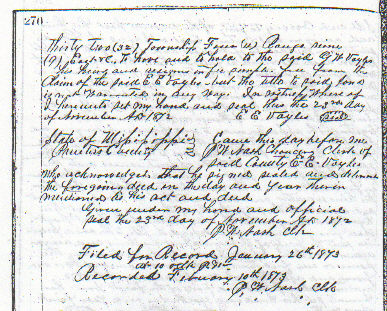 270
Thirty Two (32) Township Four (4) Range nine
(9) East &C. To have and to hold to the said G W Sayle
his heirs and assigns in fee simple free from the
Claim of the said E E Sayle but the title to said land
is not Warranted in any way. In testimony Where of
I hereunto set my hand and seal this the 23rd day
of November AD 1872 E E Sayle Seal
State of Mississippi Came this day before me
County Chancery Clerk of
said County E. E. Sayle
Who acknowledges that he signed sealed and delivered
the foregoing deed on the day and year therein
mentioned as his act and deed
Given under my hand and official
seal the 23rd day of November AD 1872
P. W. Nash Clk
Filed for Record January 26th 1873
at 10 o'clk
Recorded February 10th 1873
P. W. Nash Clk